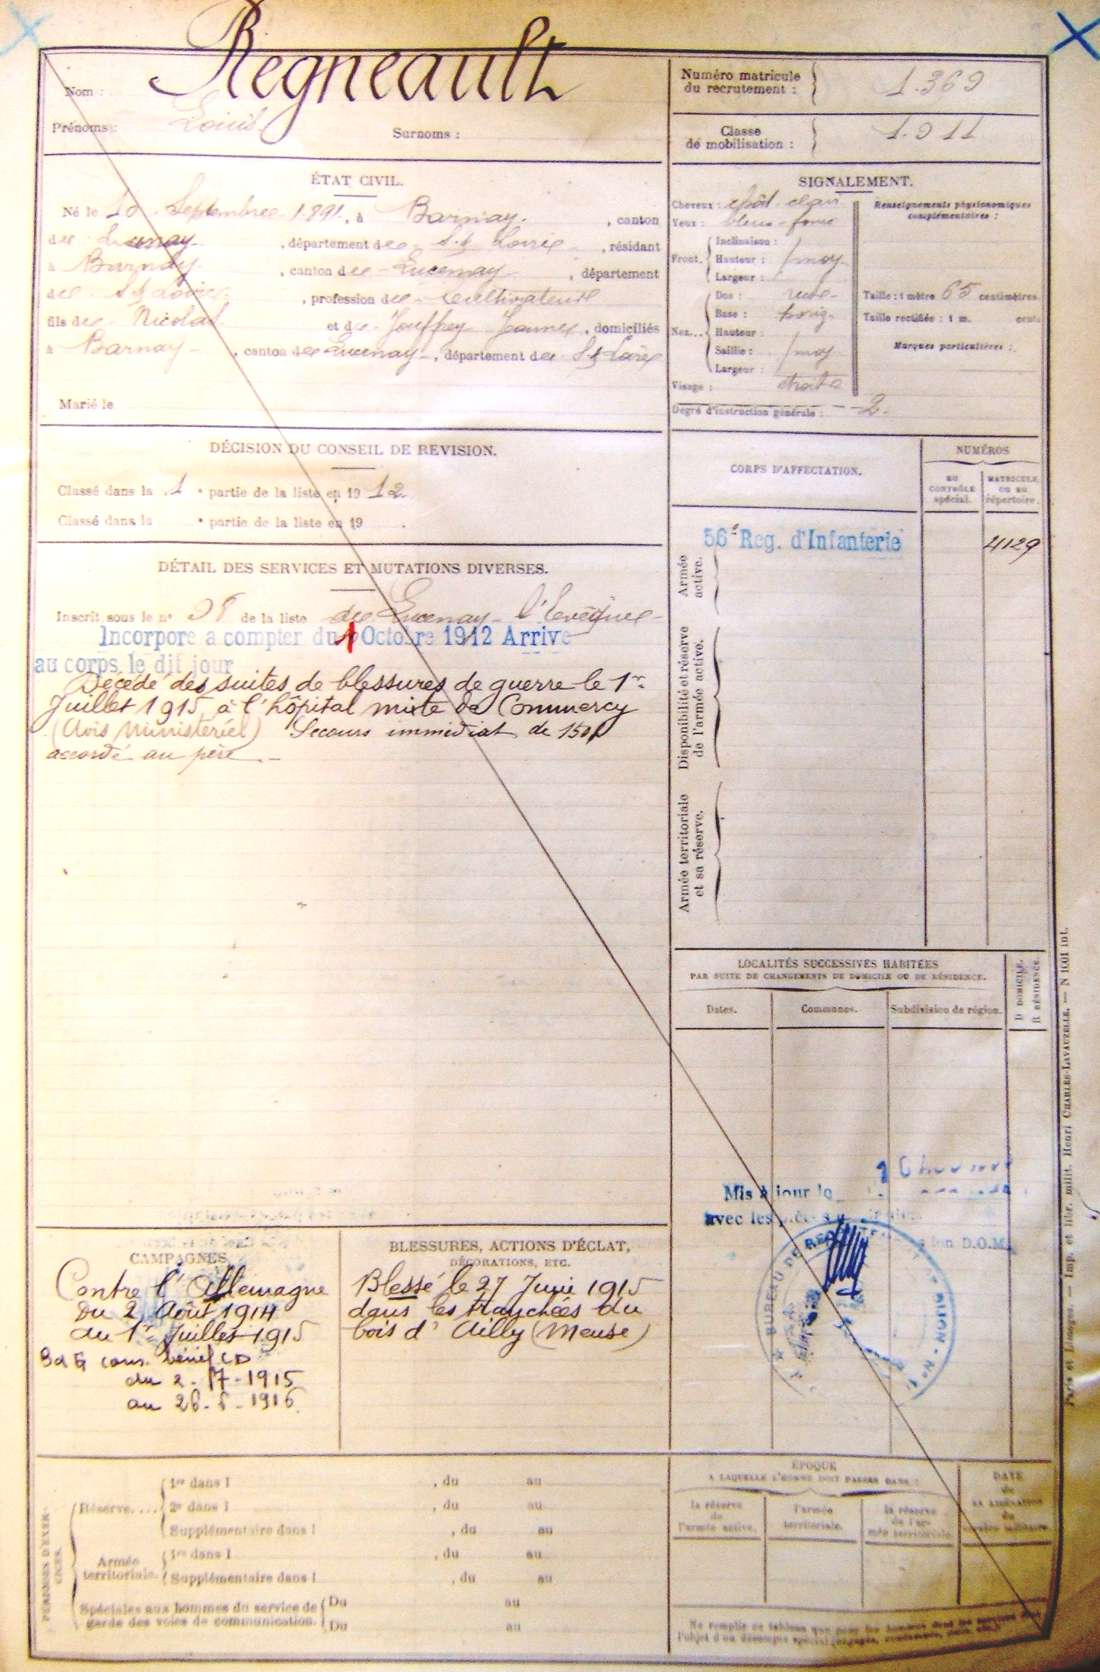 Nom : Regneault
Prénoms : Louis Surnoms :
Numéro matricule
du recrutement : 1.369
Classe
de mobilisation : 1.911
ÉTAT CIVIL.
Né le Septembre 1891, à Barnay, canton
de Lucenay, département de S. & Loire, résidant
à Barnay, canton de Lucenay, département
de S & Loire, profession de cultivateur
fils de Nicolas et de Jouffrey Jeanne, domiciliés
à Barnay, canton de Lucenay, département de S & Loire
Marié le
SIGNALEMENT.
Cheveux : chât. clair
Yeux : bleu foncé
Front. Inclinaison :
Hauteur : moy
Largeur :
Nez... Dos : rect
Base : horiz
Hauteur :
Saillie : moy
Largeur :
Visage : étroit
Degré d'instruction générale : 2.
Renseignements physionomiques
complémentaires :
Taille : 1 mètre 65 centimètres.
Taille rectifiée : 1 m. cent.
Marques particulières :
DÉCISION DU CONSEIL DE REVISION.
Classé dans la 1 e partie de la liste en 1912
Classé dans la e partie de la liste en 19
DÉTAIL DES SERVICES ET MUTATIONS DIVERSES.
Inscrit sous le n° 98 de la liste de Lucenay l'Evêque
Incorpore a compter du 1 Octobre 1912 Arrive
au corps le dit jour
Décédé des suites de blessures de guerre le 1er
Juillet 1915 à l'hôpital mixte de Commercy
(Avis Ministériel) Secours immédiat de 150f
accordé au père
CORPS D'AFFECTATION.
NUMÉROS
AU
CONTRÔLE
spécial.
MATRICULE
OU AU
répertoire.
Armée
active.
56e Reg. d'Infanterie 4129
Disponibilité et réserve
de l'armée active.
Armée territoriale
et sa réserve.
LOCALITÉS SUCCESSIVES HABITÉES
PAR SUITE DE CHANGEMENTS DE DOMICILE OU DE RÉSIDENCE.
Dates. Communes. Subdivision de région.
D. DOMICILE.
R. RÉSIDENCE.
Mis à jour le
avec les pièces
D.O.M.
BUREAU DE DIJON
CAMPAGNES
Contre l'Allemagne
Du 2 Août 1914
au 1er Juillet 1915
du 2-7-1915
BLESSURES, ACTIONS D'ÉCLAT,
DÉCORATIONS, ETC.
Blessé le 27 Juin 1915
dans les tranchées du
bois d'Ailly (Meuse)
PÉRIODES D'EXER-
CICES.
Réserve.... 1re dans l , du au
2e dans l , du au
Supplémentaire dans l , du au
Armée
territoriale. 1re dans l , du au
Supplémentaire dans l , du au
Spéciales aux hommes du service de
garde des voies de communication. Du au
Du au
ÉPOQUE
A LAQUELLE L'HOMME DOIT PASSER DANS :
la réserve
de
l'armée active.
l'armée
territoriale.
la réserve
de l'ar-
mée territoriale.
DATE
de
LA LIBÉRATION
du
service militaire.
Paris et Limoges. — Imp. et libr. milit. Henri CHARLES-LAVAUZELLE. — N 1001 int.